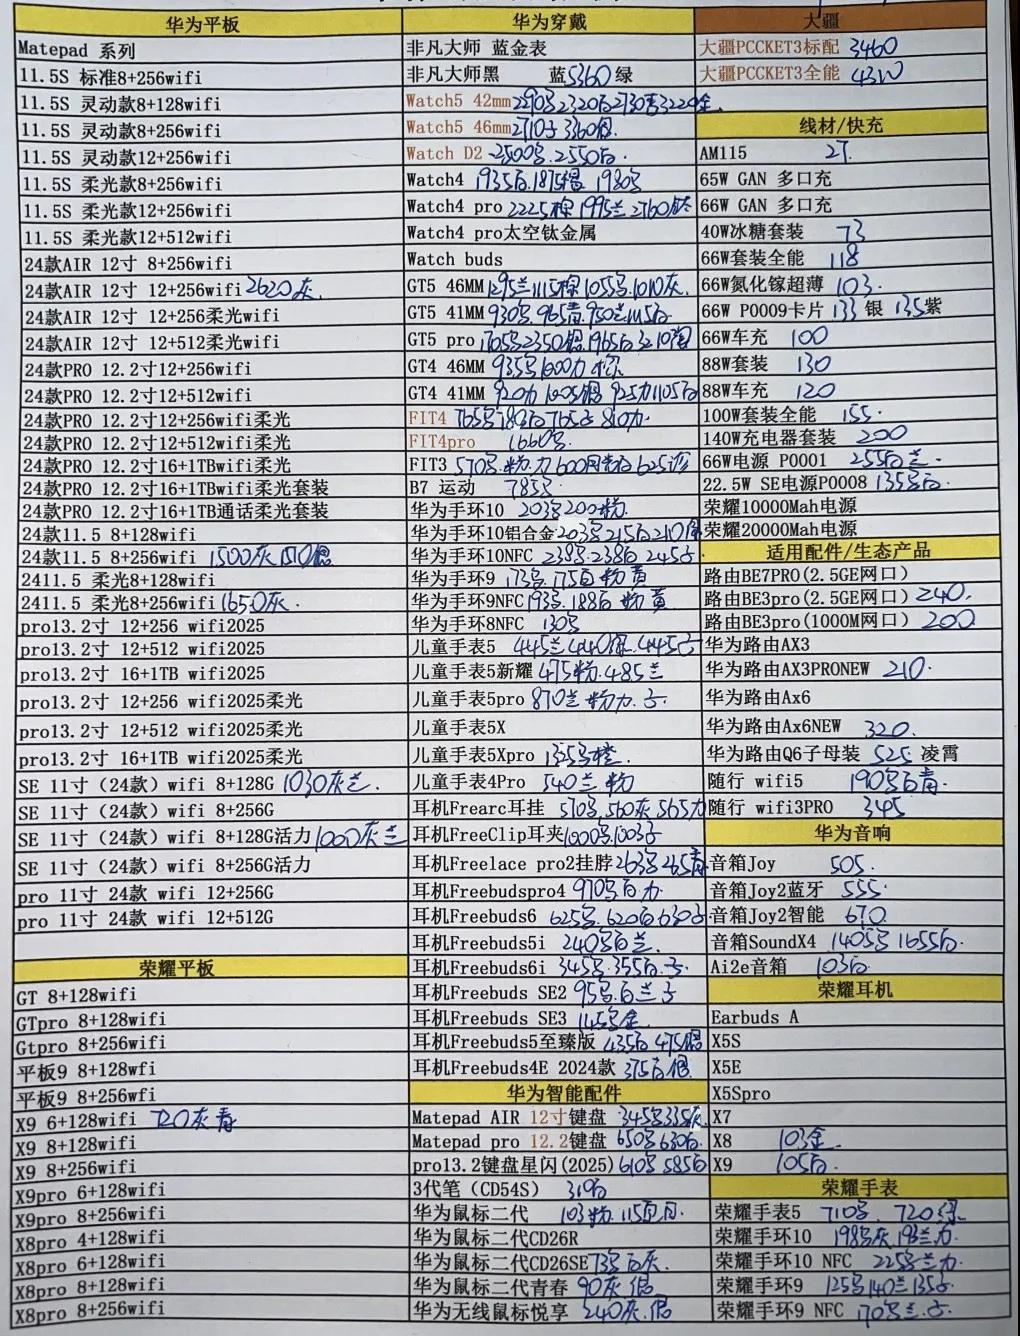 华为平板
Matepad 系列
11.5S 标准8+256wifi
11.5S 灵动款8+128wifi
11.5S 灵动款8+256wifi
11.5S 灵动款12+256wifi
11.5S 柔光款8+256wifi
11.5S 柔光款12+256wifi
11.5S 柔光款12+512wifi
24款AIR 12寸 8+256wifi
24款AIR 12寸 12+256wifi 2620灰.
24款AIR 12寸 12+256柔光wifi
24款AIR 12寸 12+512柔光wifi
24款PRO 12.2寸12+256wifi
24款PRO 12.2寸12+512wifi
24款PRO 12.2寸12+256wifi柔光
24款PRO 12.2寸12+512wifi柔光
24款PRO 12.2寸16+1TBwifi柔光
24款PRO 12.2寸16+1TBwifi柔光套装
24款PRO 12.2寸16+1TB通话柔光套装
24款11.5 8+128wifi
24款11.5 8+256wifi 1500灰1510银
2411.5 柔光8+128wifi
2411.5 柔光8+256wifi 1650灰.
pro13.2寸 12+256 wifi2025
pro13.2寸 12+512 wifi2025
pro13.2寸 16+1TB wifi2025
pro13.2寸 12+256 wifi2025柔光
pro13.2寸 12+512 wifi2025柔光
pro13.2寸 16+1TB wifi2025柔光
SE 11寸（24款）wifi 8+128G 1030灰兰.
SE 11寸（24款）wifi 8+256G
SE 11寸（24款）wifi 8+128G活力 1000灰兰
SE 11寸（24款）wifi 8+256G活力
pro 11寸 24款 wifi 12+256G
pro 11寸 24款 wifi 12+512G
荣耀平板
GT 8+128wifi
GTpro 8+128wifi
Gtpro 8+256wifi
平板9 8+128wfi
平板9 8+256wfi
X9 6+128wifi 720灰青
X9 8+128wifi
X9 8+256wifi
X9pro 6+128wifi
X9pro 8+256wifi
X8pro 4+128wifi
X8pro 6+128wifi
X8pro 8+128wifi
X8pro 8+256wifi
华为穿戴
非凡大师 蓝金表
非凡大师黑 蓝5360绿
Watch5 42mm
Watch5 46mm
Watch D2 2500黑.2550白.
Watch4 1935白.1875棕 1980黑
Watch4 pro 2225棕 1995兰 2760钛
Watch4 pro太空钛金属
Watch buds
GT5 46MM 1295兰1115棕1055黑.1010灰.
GT5 41MM 930黑.965青.950兰1115白
GT5 pro
GT4 46MM
GT4 41MM
FIT4
FIT4pro 1660黑.
FIT3
B7 运动 785黑
华为手环10 203黑200粉.
华为手环10铝合金 203黑215白210
华为手环10NFC 238黑.238白 245
华为手环9 173黑.175白 粉 黄
华为手环9NFC 193黑.188白 粉 黄
华为手环8NFC 130黑
儿童手表5
儿童手表5新耀 475粉.485兰
儿童手表5pro 870兰 粉
儿童手表5X
儿童手表5Xpro
儿童手表4Pro 540兰 粉
耳机Frearc耳挂 570黑.560灰 565
耳机FreeClip耳夹
耳机Freelace pro2挂脖 263黑 265青
耳机Freebudspro4 970黑白
耳机Freebuds6 625黑.620白630
耳机Freebuds5i 240黑白兰.
耳机Freebuds6i 345黑.355白.
耳机Freebuds SE2 95黑.白兰
耳机Freebuds SE3 145黑金
耳机Freebuds5至臻版 435白 475银
耳机Freebuds4E 2024款 375白银
华为智能配件
Matepad AIR 12寸键盘 345黑335灰
Matepad pro 12.2键盘 650黑630白
pro13.2键盘星闪(2025) 610黑585白
3代笔（CD54S） 319白
华为鼠标二代
华为鼠标二代CD26R
华为鼠标二代CD26SE 73黑白灰.
华为鼠标二代青春 90灰 银
华为无线鼠标悦享 240灰.银
大疆
大疆PCCKET3标配 3460
大疆PCCKET3全能
线材/快充
AM115 27.
65W GAN 多口充
66W GAN 多口充
40W冰糖套装 73
66W套装全能 118
66W氮化镓超薄 103.
66W P0009卡片 133 银 135紫
66W车充 100
88W套装 130
88W车充 120
100W套装全能 155.
140W充电器套装 200
66W电源 P0001 255白兰.
22.5W SE电源P0008 135黑白.
荣耀10000Mah电源
荣耀20000Mah电源
适用配件/生态产品
路由BE7PRO(2.5GE网口)
路由BE3pro(2.5GE网口) 240.
路由BE3pro(1000M网口) 200
华为路由AX3
华为路由AX3PRONEW 210.
华为路由Ax6
华为路由Ax6NEW 320.
华为路由Q6子母装 525 凌霄
随行 wifi5 190黑白青
随行 wifi3PRO 345
华为音响
音箱Joy 505.
音箱Joy2蓝牙 555.
音箱Joy2智能 670
音箱SoundX4 1405黑 1655白.
Ai2e音箱 103白
荣耀耳机
Earbuds A
X5S
X5E
X5Spro
X7
X8 103金
X9 105白.
荣耀手表
荣耀手表5 710黑、720绿.
荣耀手环10
荣耀手环10 NFC
荣耀手环9 125黑140兰135
荣耀手环9 NFC 170黑兰.